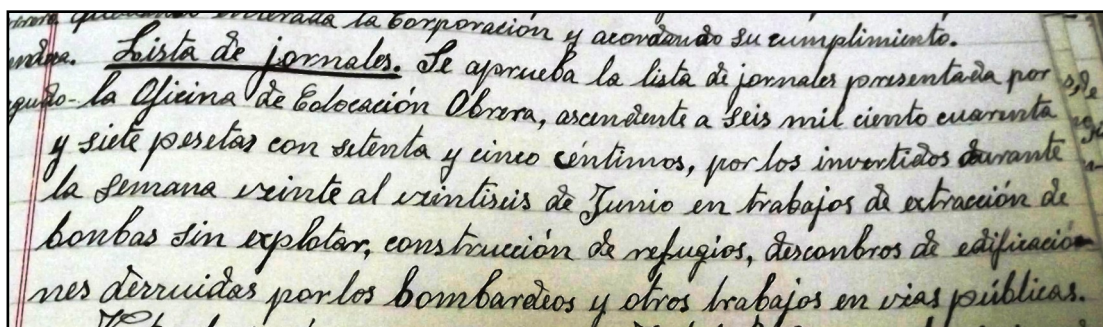 quedando enterada la Corporación y acordando su cumplimiento.
Lista de jornales. Se aprueba la lista de jornales presentada por
la Oficina de Colocación Obrera, ascendente a seis mil ciento cuarenta
y siete pesetas con setenta y cinco céntimos, por los invertidos durante
la semana veinte al veintiseis de Junio en trabajos de extracción de
bonbas sin explotar, construcción de refugios, desconbros de edificacio
nes derruidas por los bombardeos y otros trabajos en vias públicas.